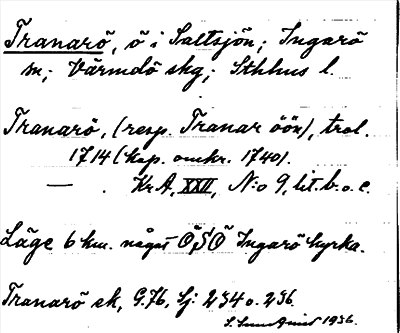 Tranarö, ö i Saltsjön; Ingarö
sn; Värmdö skg; Sthlms l.
Tranarö, (resp. Tranar öön), trol.
1714 (kop. omkr. 1740).
— . Kr A, XXII, N:o 9, lit. b. o. c.
Läge 6 km. något ÖSÖ Ingarö kyrka.
Tranarö ek, G. 76, Sj: 234 o. 236.
1936.